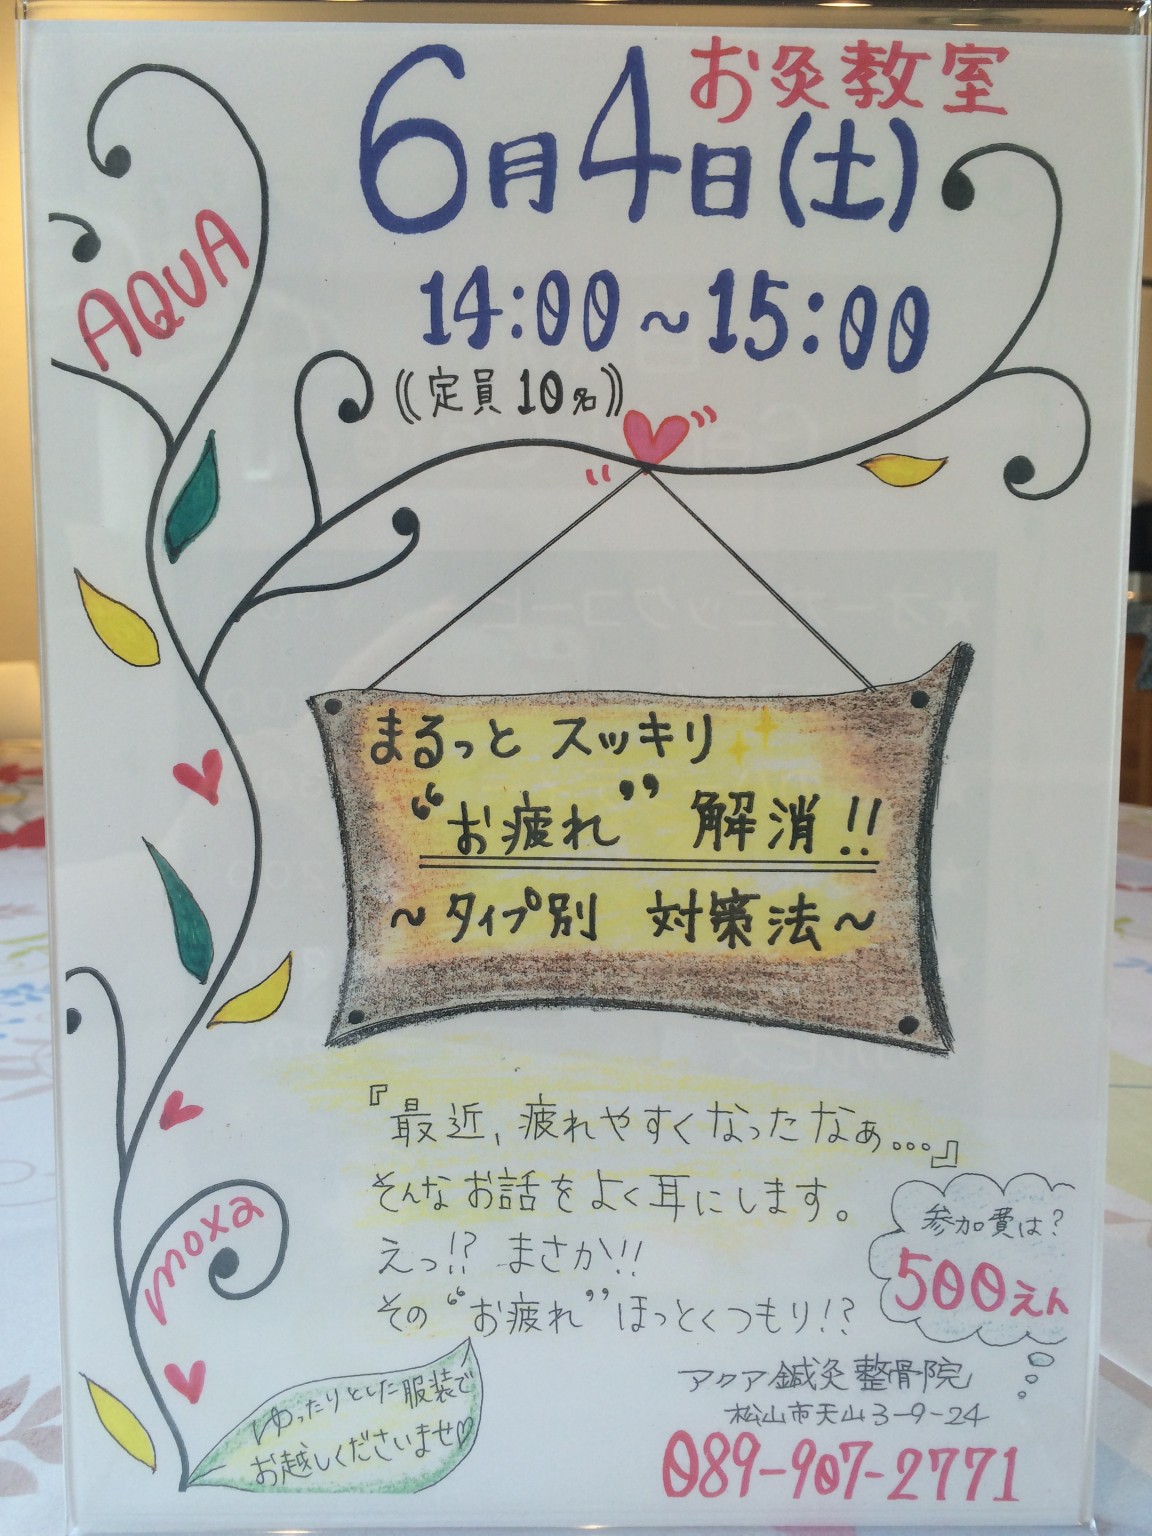 お灸教室
6月4日(土)
AQUA
14:00~15:00
((定員10名))
まるっと スッキリ
“お疲れ” 解消!!
~タイプ別 対策法~
『最近、疲れやすくなったなぁ...』
そんなお話をよく耳にします。
えっ!? まさか!!
その“お疲れ”ほっとくつもり!?
参加費は?
500えん
moxa
ゆったりとした服装で
お越しくださいませ♡
アクア鍼灸整骨院
松山市天山3-9-24
089-907-2771